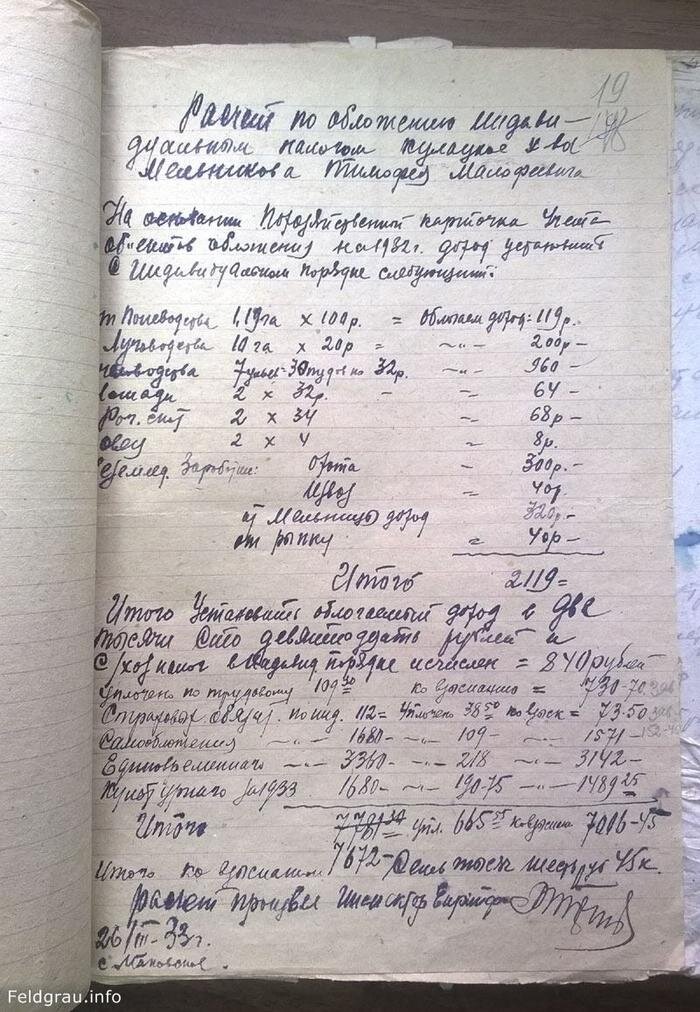 19
Расчет по обложению индиви-
дуальным налогом кулацкое х-ва
Мельникова Тимофея Малофеевича
На основании Похозяйственной карточки учета
объектов обложения на 1932 г. доход установить
в индивидуальном порядке следующий:
т Полеводства 1,19 га х 100 р. = Облагаем доход: 119 р.
Луговодства 10 га х 20 р = -"- 200р-
человодства 7 ульев = 30 пудов по 32 р. -"- 960 -
лошади 2 х 32 р. - = 64 -
Рог. скот 2 х 34 = 68р -
овец 2 х 4 = 8р.
Заработки: Охота = 300р.-
Извоз = 40р
от Мельницы доход 320р.-
от рынку = 40р -
Итого 2119=
Итого Установить облагаемый доход в две
тысячи сто девятнадцать рублей и
С/хоз налог в порядке исчислен = 840 рублей
Уплочено по трудовому 109 30 ко взысканию = 730-70
Страховых обязат. по инд. 112= Уплочено 38 50 ко взыск = 73-50
Самообложения -"- 1680- -"- 109- -"- 1571-
Единовременного -"- 3360- -"- 218 -"- 3142-
Культурного за 1933 1680- -"- 190-75 -"- 1489 25
Итого упл. 665 55 ко взыскан 7006-45
7672-
Итого ко взысканию Семь тысяч шесть руб 45 к.
Расчет произвел инспектор
26/III-33 г.
с. Маковское.
Feldgrau.info